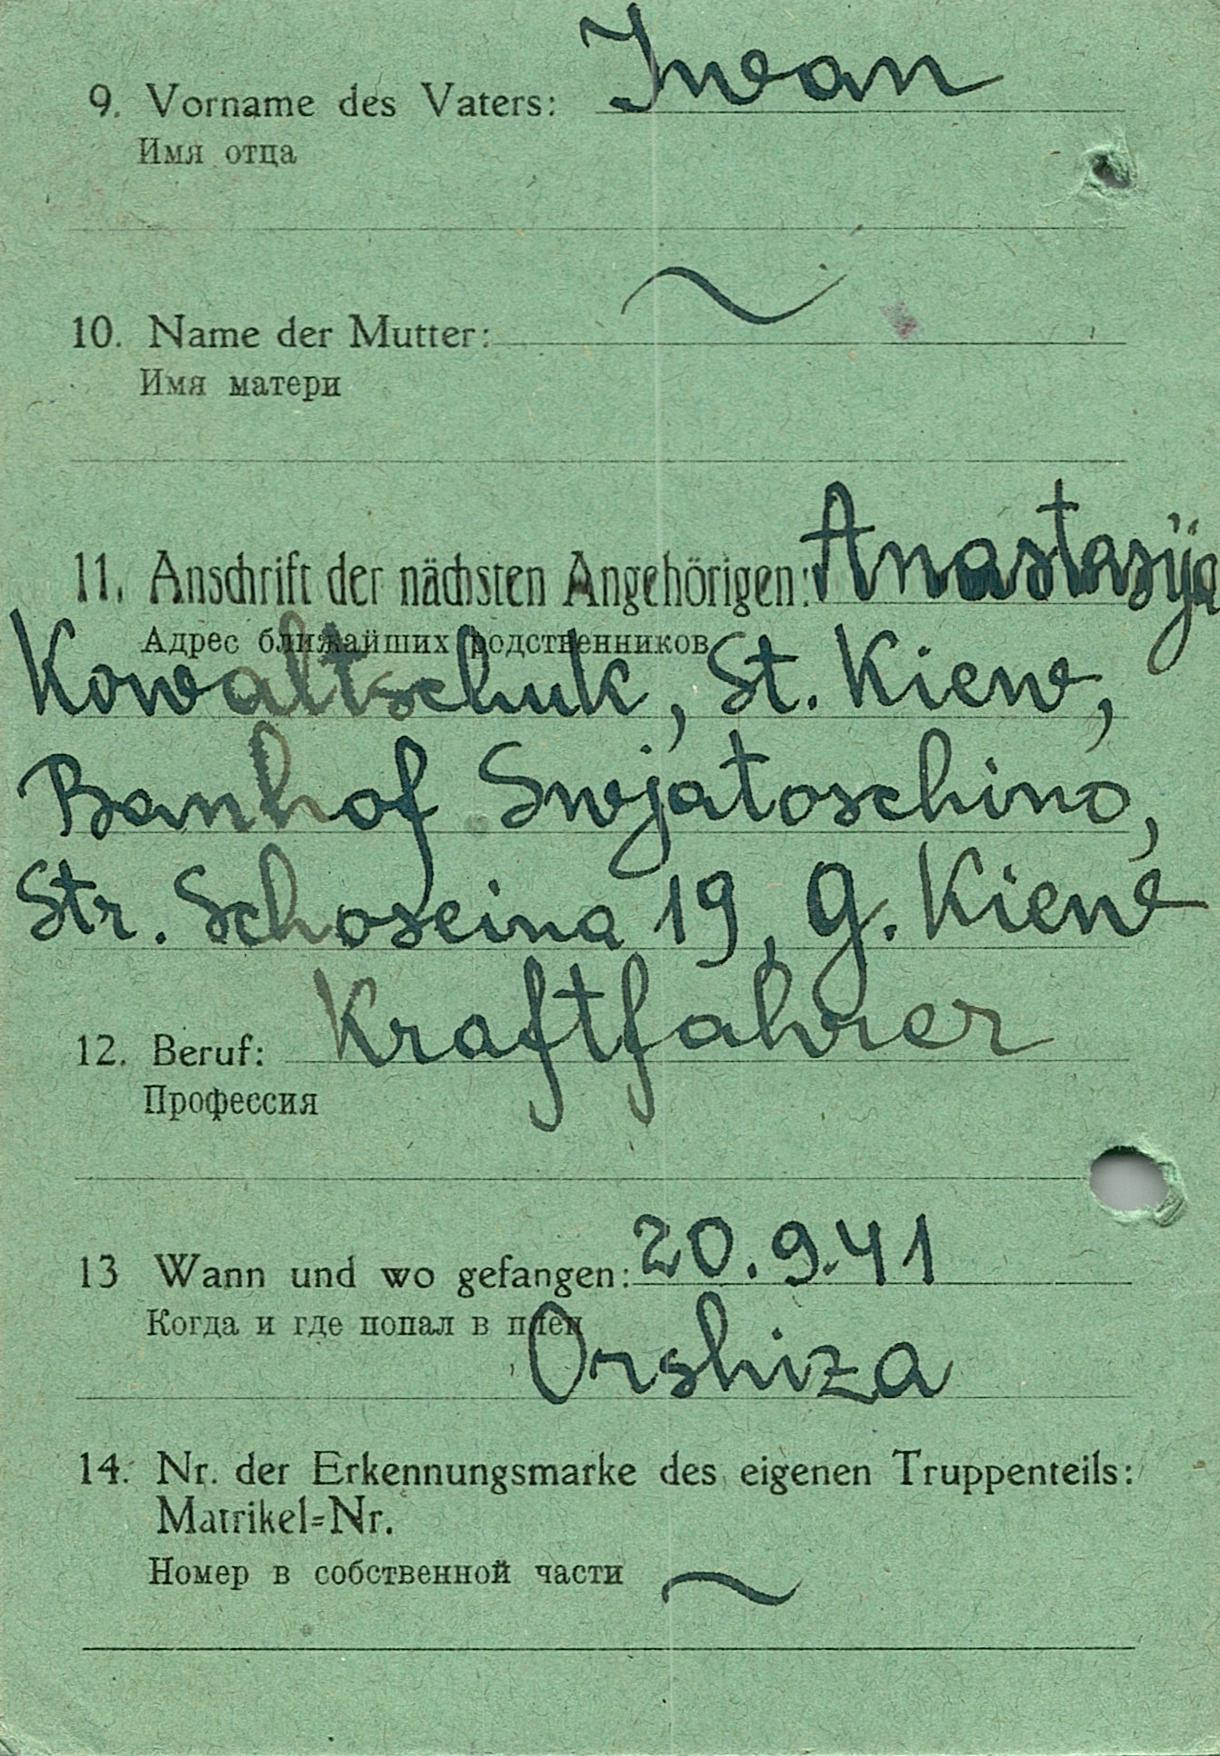 9. Vorname des Vaters: Iwan
Имя отца
10. Name der Mutter: ~
Имя матери
11. Anschrift der nächsten Angehörigen: Anastasija
Адрес ближайших родственников
Kowaltschuk, St. Kiew,
Banhof Swjatoschino,
Str. Schoseina 19, G. Kiew
12. Beruf: Kraftfahrer
Профессия
13 Wann und wo gefangen: 20.9.41
Когда и где попал в плен
Orshiza
14. Nr. der Erkennungsmarke des eigenen Truppenteils:
Matrikel=Nr.
Номер в собственной части ~